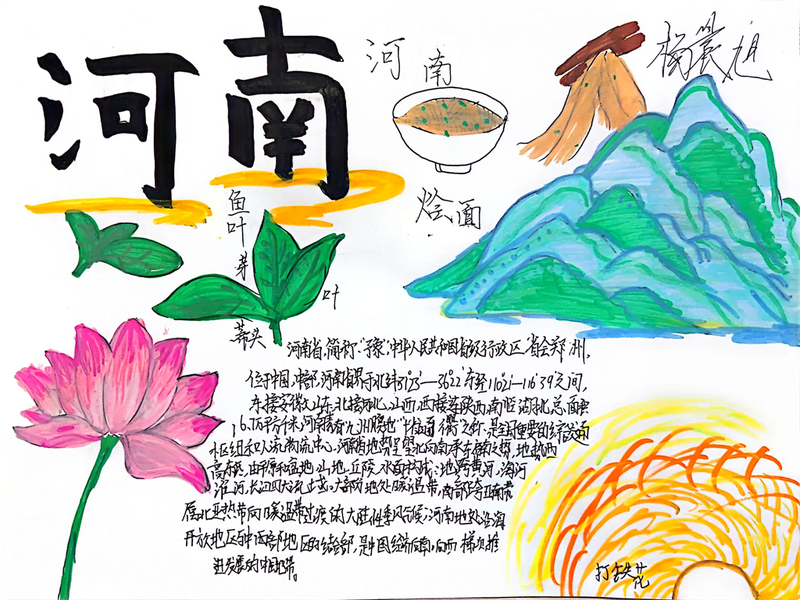 河南
河南
烩面
杨晨旭
鱼叶
芽
叶
蒂头
河南省,简称“豫”,中华人民共和国省级行政区,省会郑州,
位于中国中部,河南省界于北纬31°23′—36°22′东经110°21′—116°39′之间,
东接安徽、山东,北接河北、山西,西接陕西,南临湖北,总面积
16.7万平方千米,河南素有“九州腹地 十省通衢”之称,是全国重要的综合交通
枢纽和人流物流中心,河南地势呈望北向南承东启西之势,地势西
高东低,由平原和盆地、山地、丘陵、水面构成;地跨黄河、海河
淮河、长江四大流域。大部分地处暖温带,南部跨亚热带
属北亚热带向暖温带过渡的大陆性季风气候;河南地处沿海
开放地区与中西部地区的结合部,是中国经济由东向西梯次推
进发展的中间地带。
打铁花